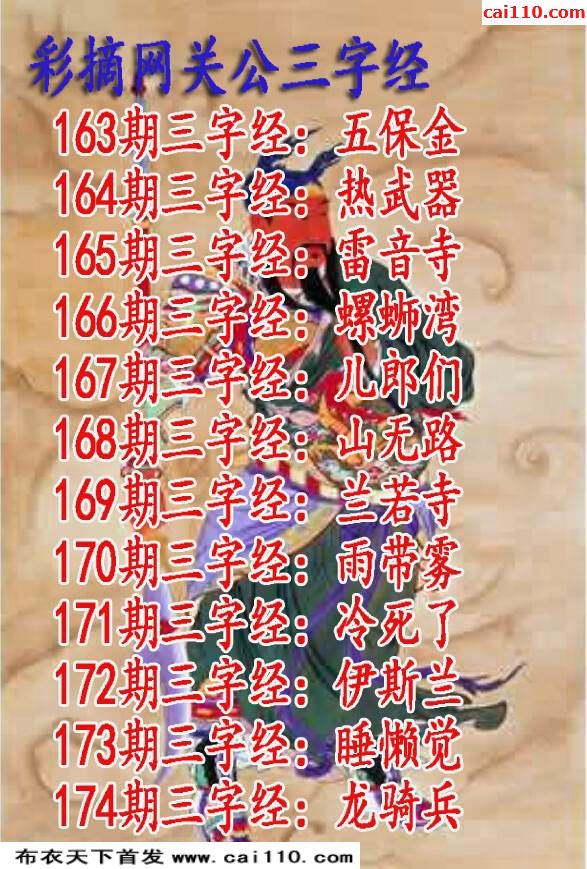 cai110.com
彩摘网关公三字经
163期三字经：五保金
164期三字经：热武器
165期三字经：雷音寺
166期三字经：螺蛳湾
167期三字经：儿郎们
168期三字经：山无路
169期三字经：兰若寺
170期三字经：雨带雾
171期三字经：冷死了
172期三字经：伊斯兰
173期三字经：睡懒觉
174期三字经：龙骑兵
布衣天下首发 www.cai110.com